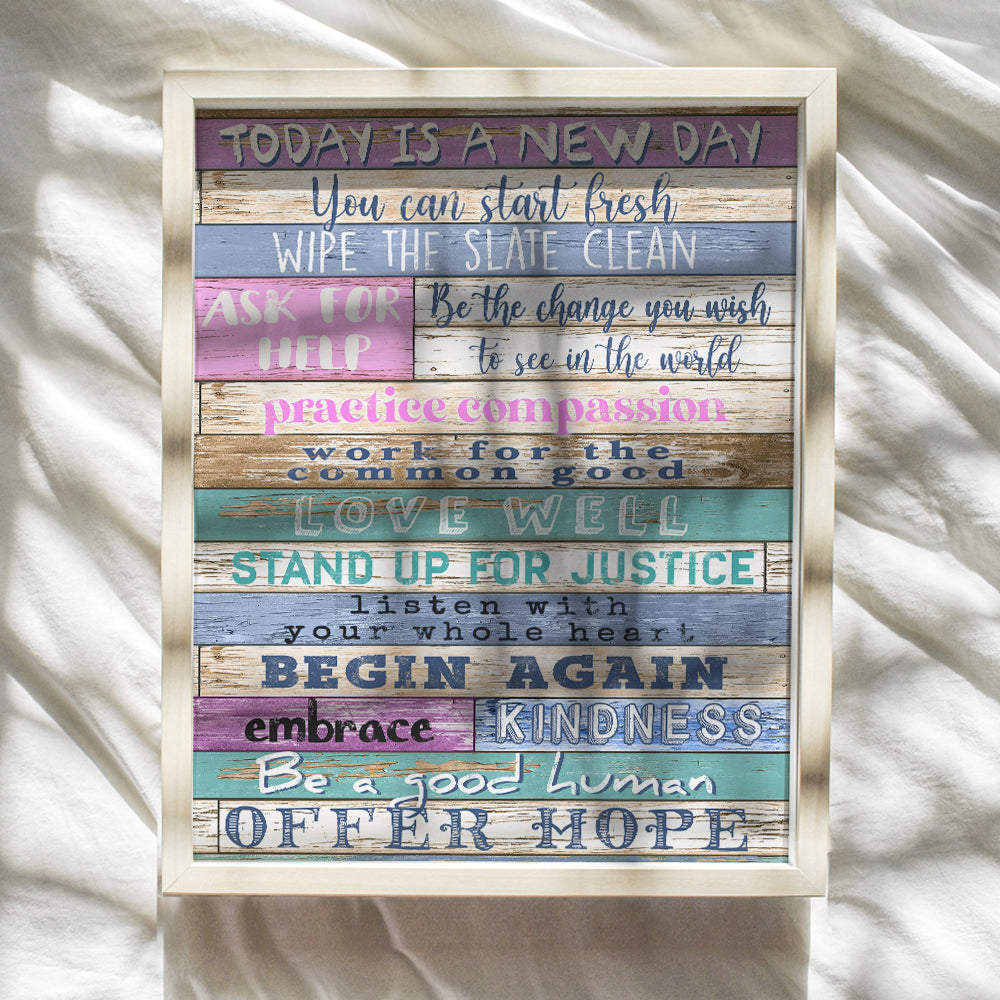 TODAY IS A NEW DAY
You can start fresh
WIPE THE SLATE CLEAN
ASK FOR
HELP
Be the change you wish
to see in the world
practice compassion
work for the
common good
LOVE WELL
STAND UP FOR JUSTICE
listen with
your whole heart
BEGIN AGAIN
embrace
KINDNESS
Be a good human
OFFER HOPE